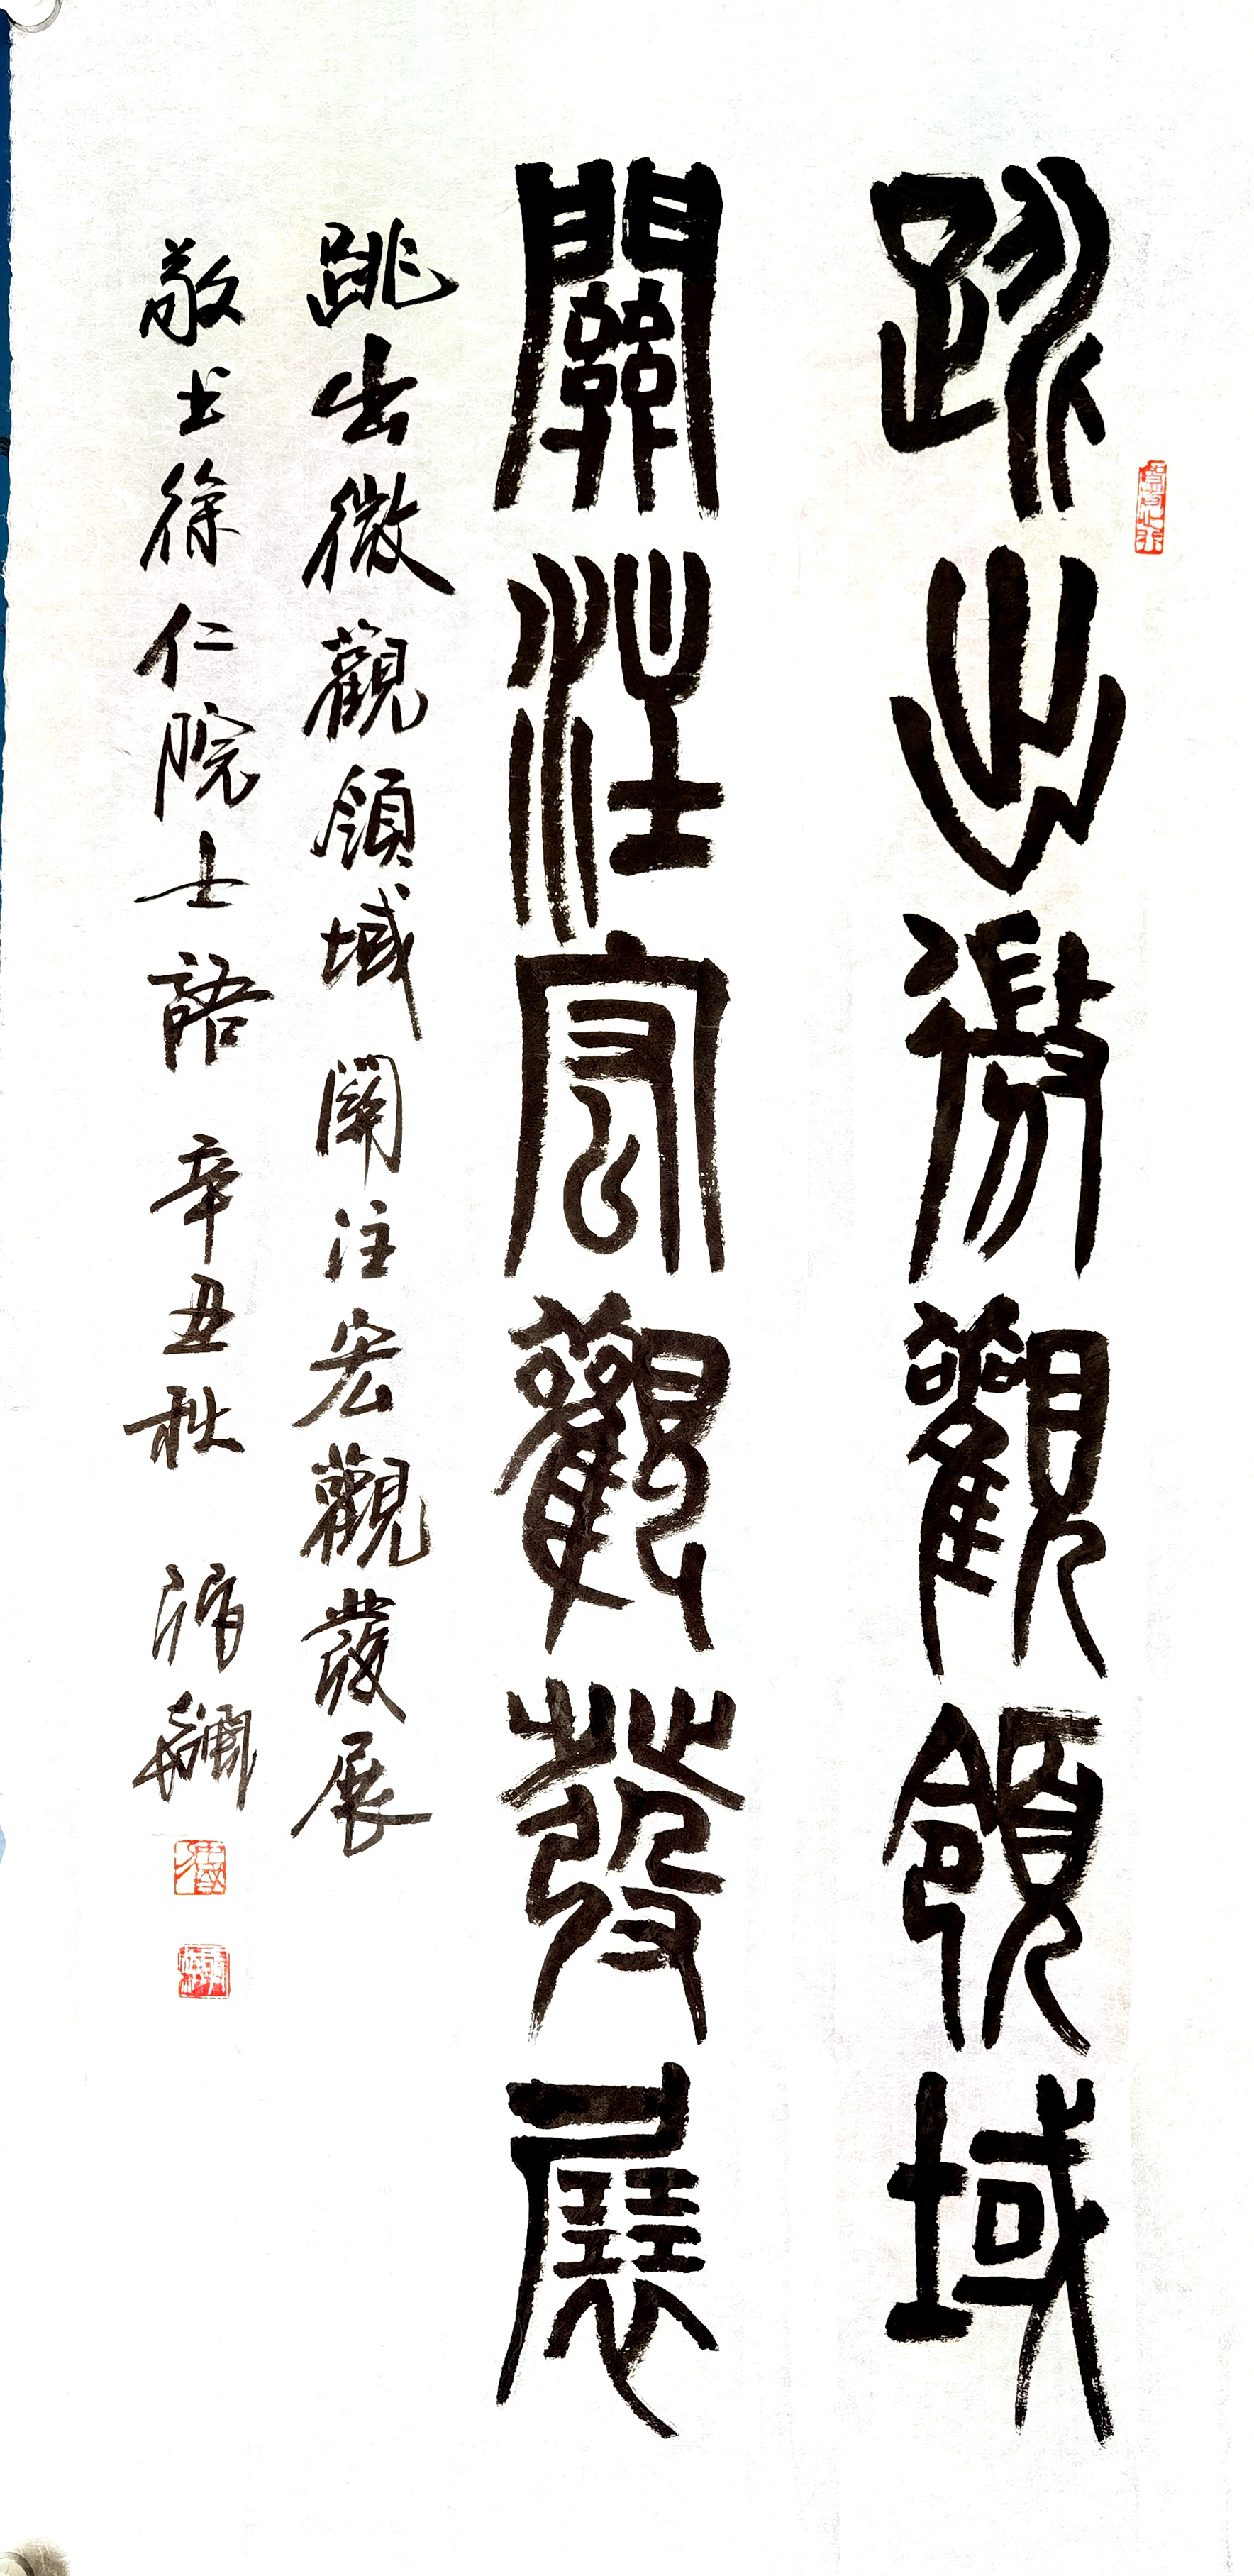 跳出微觀領域
關注宏觀發展
跳出微觀領域關注宏觀發展
敬书徐仁院士語 辛丑秋